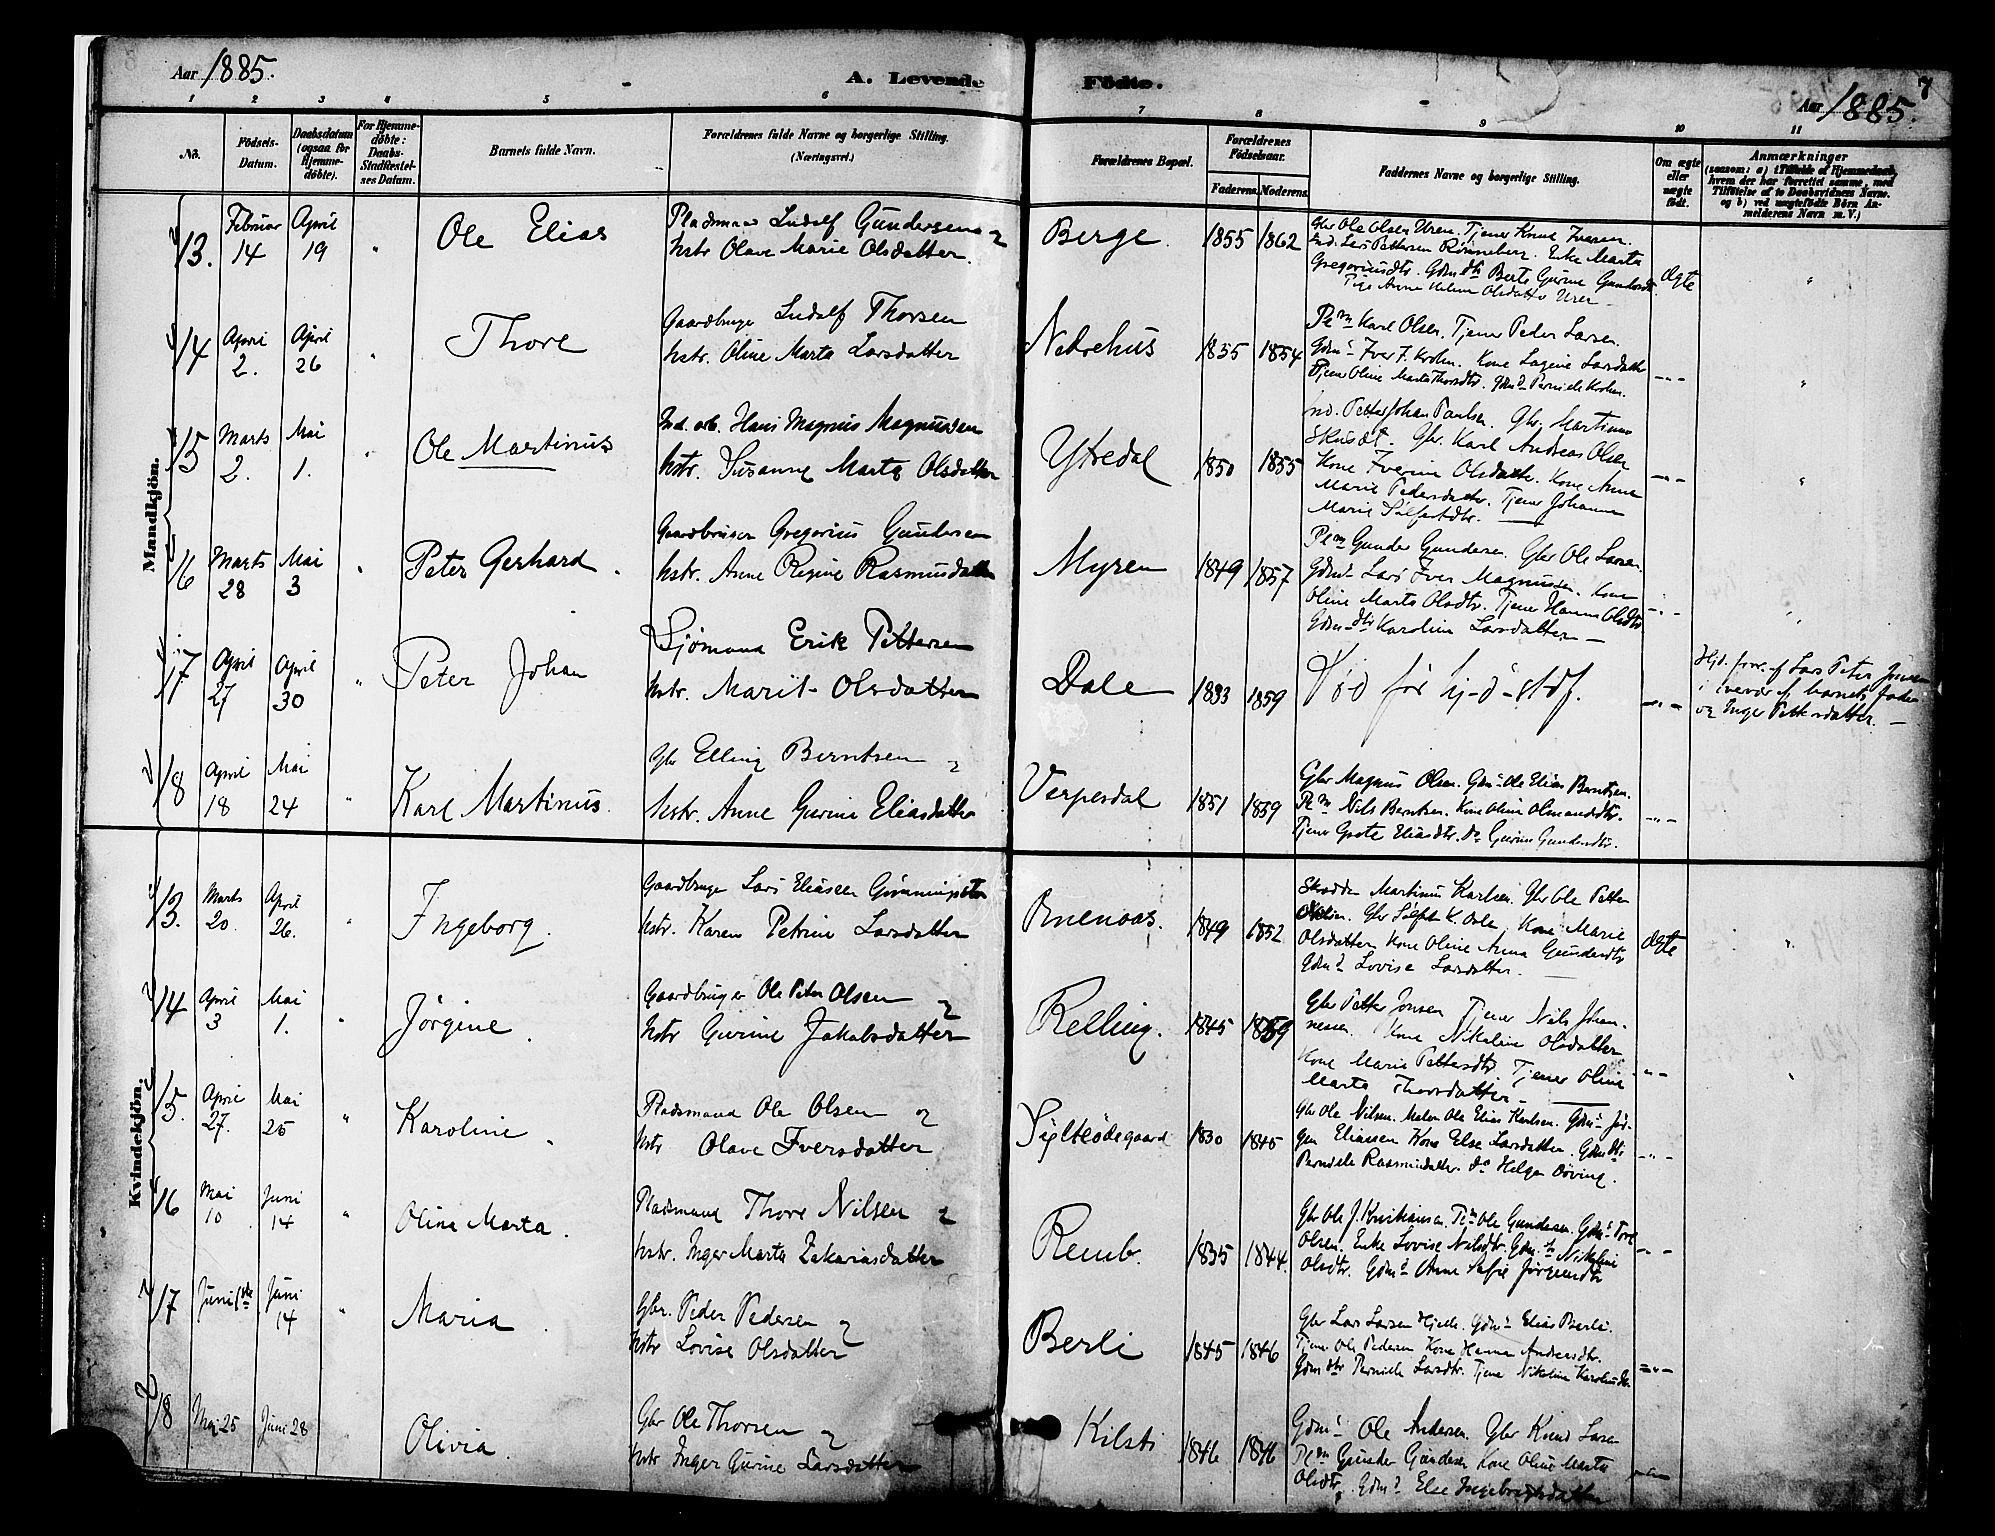 Aar 1885. A. Levende Fødte. 7
Aar 1885.
1 2 3 4 5 6 7 8 9 10 11
No. Fødsels-Datum. Daabsdatum (ogsaa for Hjemmedøbte). For Hjemmedøbte: Daabs-Stadfæstelses Datum. Barnets fulde Navn. Forældrenes fulde Navne og borgerlige Stilling. (Næringsvei.) Forældrenes Bopæl. Forældrenes Fødselsaar. Faderens. Moderens. Faddernes Navne og borgerlige Stilling. Om ægte eller uægte født. Anmærkninger (saasom: a) i Tilfælde af Hjemmedaab, hvem der har forrettet samme, med Tilføielse af to Daabsvidners Navne. og b) ved uægtefødte Børn Anmelderens Navn m. V.)
Mandkjøn.
13. Februar 14 April 19 " Ole Elias Pladsmand Ludolf Gundersen og
Hstr Olave Marie Olsdatter. Berge. 1855 1862 Gbr Ole Olsen Uren. Tjener Knut Iversen.
Ind. Lars Pettersen Rønneberg. Enke Marta
Gregoriusdtr. Gdm dtr Berte Gurine
Pige Anne Olsdatter Uren Ægte "
14 April 2. April 26 " Thore Gaardbruger Ludolf Thorsen
Hstr. Oline Marta Larsdatter Nedrehus 1855 1854 Plm Karl Olsen. Tjener Peder Larsen.
Gdms Iver I. Krohn. Kone Larsdatter
Tjener Oline Marta Thorsdtr. Gdmd Pernille Krohn. -"- "
15 Marts 2. Mai 1. " Ole Martinus Ind. arb. Hans Magnus Magnussen
Hstr. Susanne Marta Olsdatter Ytredal 1850 1855 Ind. Petter Johan Paulsen. Gbr. Martinus
Gbr. Karl Andreas Olsen
Kone Iverine Olsdatter. Kone Anne
Marie Pedersdatter. Tjener Johanne
Marie Sølfestdtr. -"- "
16 Marts 28 Mai 3 " Peter Gerhard. Gaardbruger Gregorius Gundersen
Hstr. Anne Regine Rasmusdatter Myren 1849 1857 Plm Gunder Gundersen. Gbr Ole Larsen.
Gdms Lars Iver Magnussen. Kone
Oline Marta Olsdtr. Tjener Hanna Olsdtr
Gdm dtr Karoline Larsdatter -"- "
17 April 27 April 30 " Peter Johan Sjømand Erik Pettersen
Hstr. Marit Olsdatter Dale 1833 1859 Død før hj-d-stdf. -"- Hjd. forr. af Lars Peter Jensen
i overvær af barnets fader
og Inger Pettersdatter.
18 April 18 Mai 24 " Karl Martinus. Gbr Elling Berntsen og
Hstr. Anne Gurine Eliasdatter Verpesdal 1851 1859 Gbr Magnus Olsen. Gdms Ole Elias Berntsen.
Plm Nils Berntsen. Kone Oline Olmandsdtr.
Tjener Grete Eliasdtr. do Gurine Gundersdtr. -"-
Kvindekjøn.
13. Marts 20. April 26. " Ingeborg. Gaardbruger Lars Eliassen Grønningsæter
Hstr. Karen Petrine Larsdatter 1849 1852 Skrædder Martinus Karlsen. Gbr Ole Petter
Gbr Sølfest K. Dale. Kone Marie
Olsdatter. Kone Oline Anna Gundersdtr
Gdmd Lovise Larsdatter. Ægte "
14 April 3 Mai 1. " Jørgine. Gaardbruger Ole Peter Olsen og
Hstr Gurine Jakobsdatter Relling. 1845 1859 Gbr Petter Jonsen Tjener Nils Johan-
nessen. Kone Nikoline Olsdatter
Kone Marie Pettersdtr. Tjener Oline
Marta Thorsdatter -"- "
15. April 27. Mai 25 " Karoline. Pladsmand Ole Olsen og
Hstr Olave Iversdatter Syltødegaard 1830 1845 Gbr Ole Nilsen. Maler Ole Elias Karlsen. Gdms Jør-
gen Eliassen Kone Else Larsdatter. Gdm dtr
Pernille Rasmusdatter do Helga Døving. -"-
16 Mai 10 Juni 14 " Olina Marta. Pladsmand Thore Nilsen og
Hstr. Inger Marta Zakariasdatter Remb. 1835 1844. Gbr Ole J. Kristiansen. Plm Ole Gundersen. Gdms Tore
Olsen. Enke Lovise Nilsdtr. Gdm dtr Nikoline
Olsdtr. Gdmd Anne Sofie Jørgensdtr -"-
17 Juni 1ste Juni 14 " Maria. Gbr. Peder Pedersen og
Hstr Lovise Olsdatter Berli 1845 1846 Gbr Lars Larsen Hjelle. Gdms Elias Berli.
Tjener Ole Pedersen Kone Hanna Andreasdtr.
Gdm dtr Pernille Larsdtr. Tjener Nikoline -"-
18 Mai 25 Juni 28 Olivia Gbr Ole Thorsen og
Hstr Inger Gurine Larsdatter Kilsti 1846 1846 Gdms Ole Andersen. Gbr Knud Larsen
Plm Gunder Gundersen Kone Oline Marta
Olsdtr. Gdmd Else Ingebrigtsdatter -"-